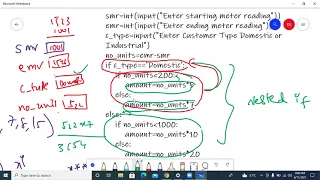 Microsoft Whiteboard
1523
smr 1001
emr
c_type Domestic
no_unit 1522
7, 8, 15
512*7
3554
smr=int(input("Enter starting meter reading"))
emr=int(input("Enter ending meter reading"))
c_type=input("Enter Customer Type Domestic or
Industrial")
no_units=emr-smr
if c_type=='Domestic':
if no_units<200:
amount=no_units*
else:
amount=no_units*7
else:
if no_units<1000:
amount=no_units*10
else:
amount=no_units*20
nested if